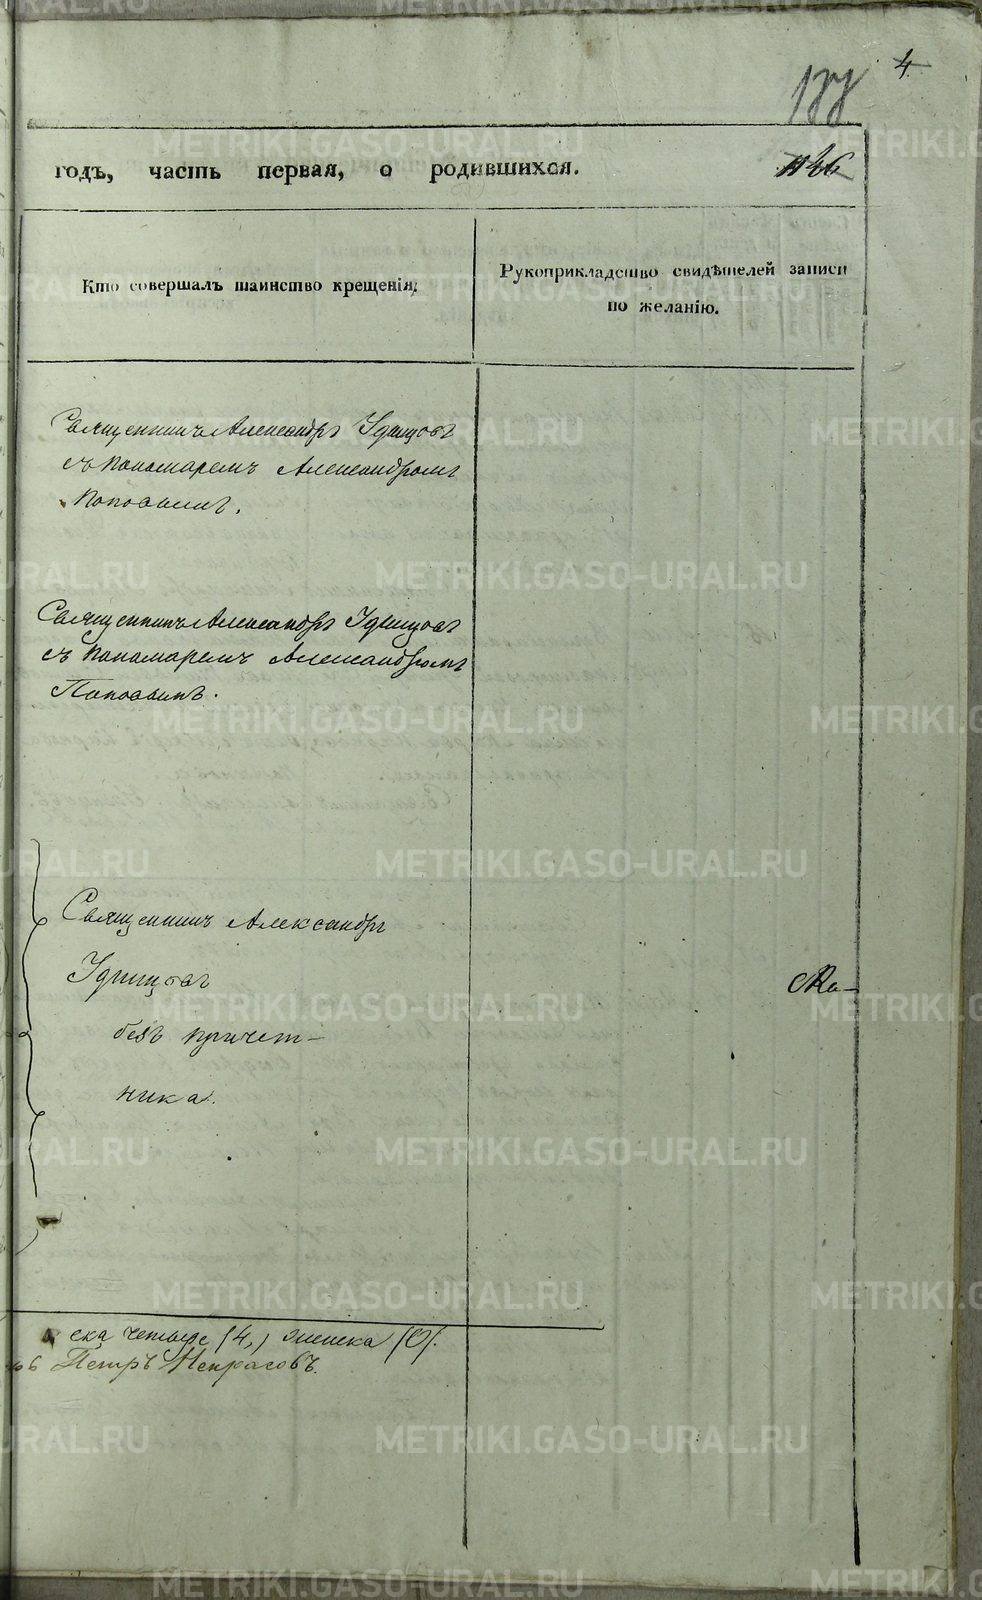 4
188
годъ, часть первая, о родившихся.
Кто совершалъ таинство крещенія.
Рукоприкладство свидѣтелей записи
по желанію.
Священникъ Александръ Удинцовъ
съ Пономаремъ Александромъ
Поповымъ.
Священникъ Александръ Удинцовъ
съ Пономаремъ Александромъ
Поповымъ.
Священникъ Александръ
Удинцовъ
безъ причет-
ника.
четыре (4,) женска (0).
Петръ Некрасовъ.
METRIKI.GASO-URAL.RU